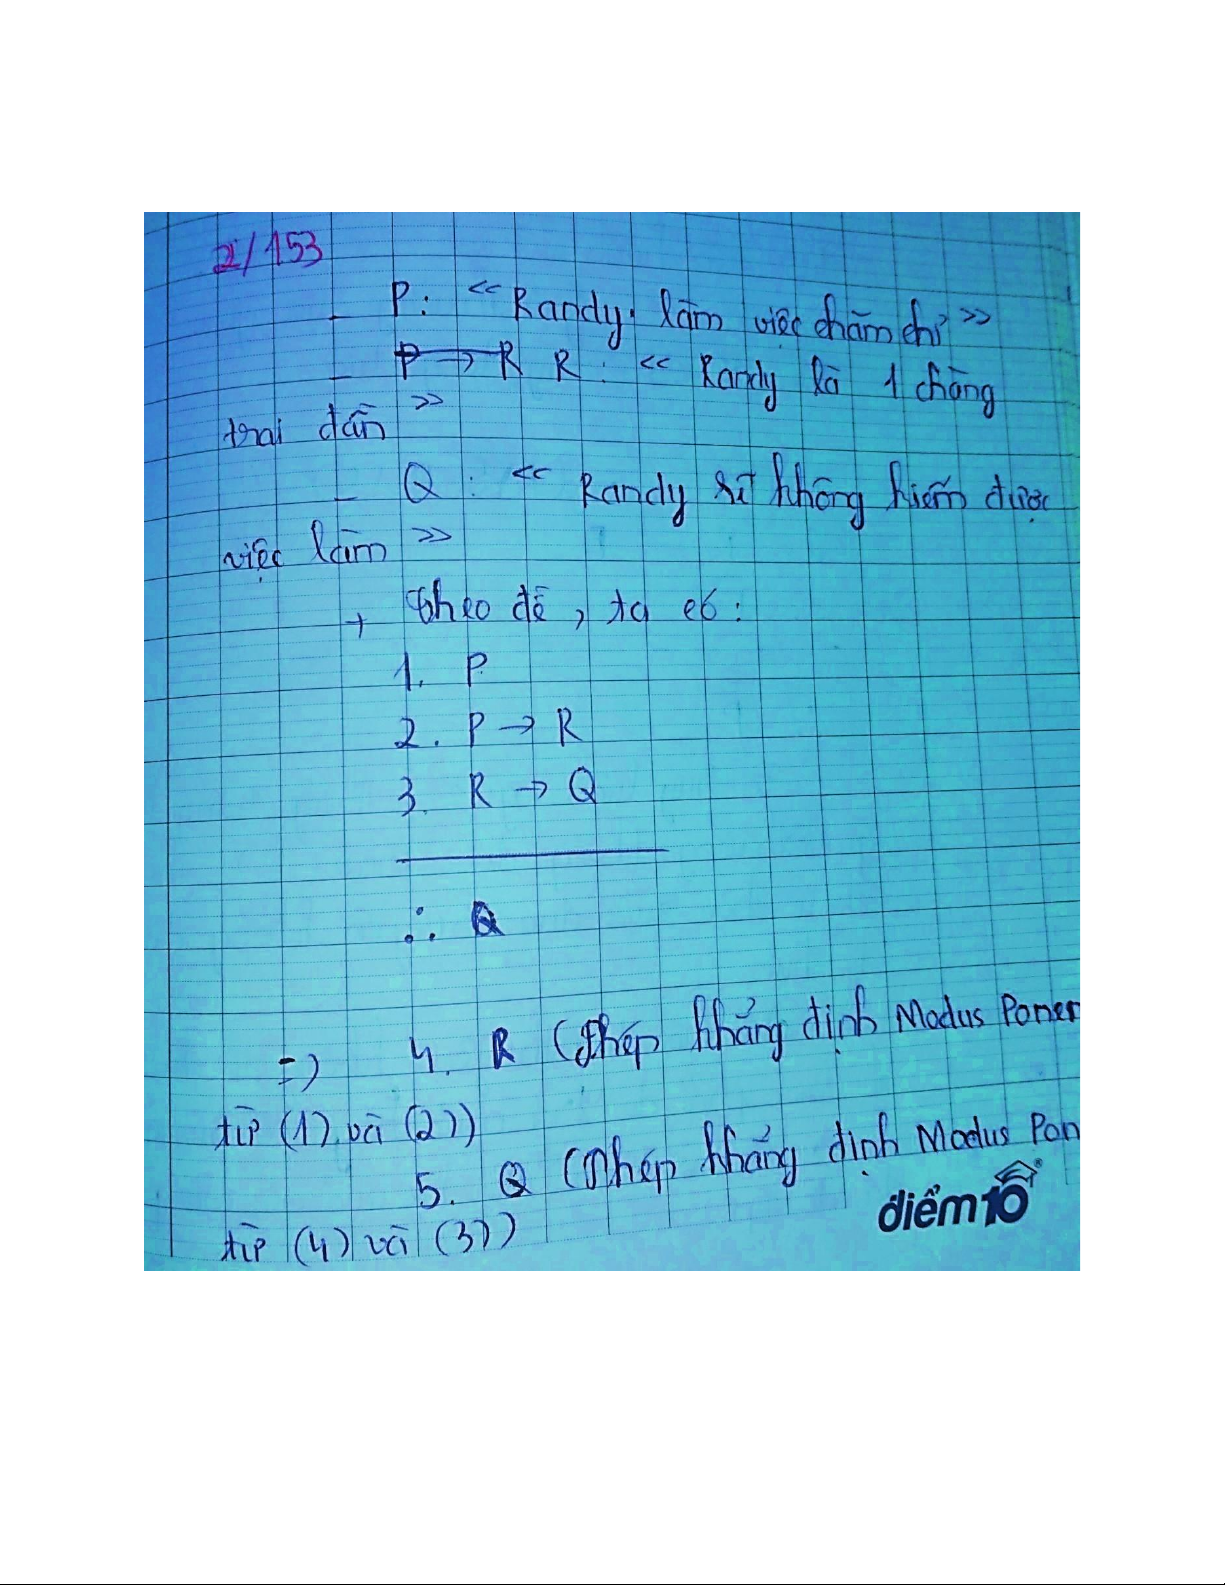 2/153
- P: << Randy làm việc chăm chỉ >>
- P → R R: << Randy là 1 chàng
trai đần >>
- Q: << Randy sẽ không kiếm được
việc làm >>
+ Theo đề, ta có:
1. P
2. P → R
3. R → Q
∴ Q
=> 4. R (Phép khẳng định Modus Ponen
từ (1) và (2))
5. Q (Phép khẳng định Modus Pon
từ (4) và (3))
điểm10